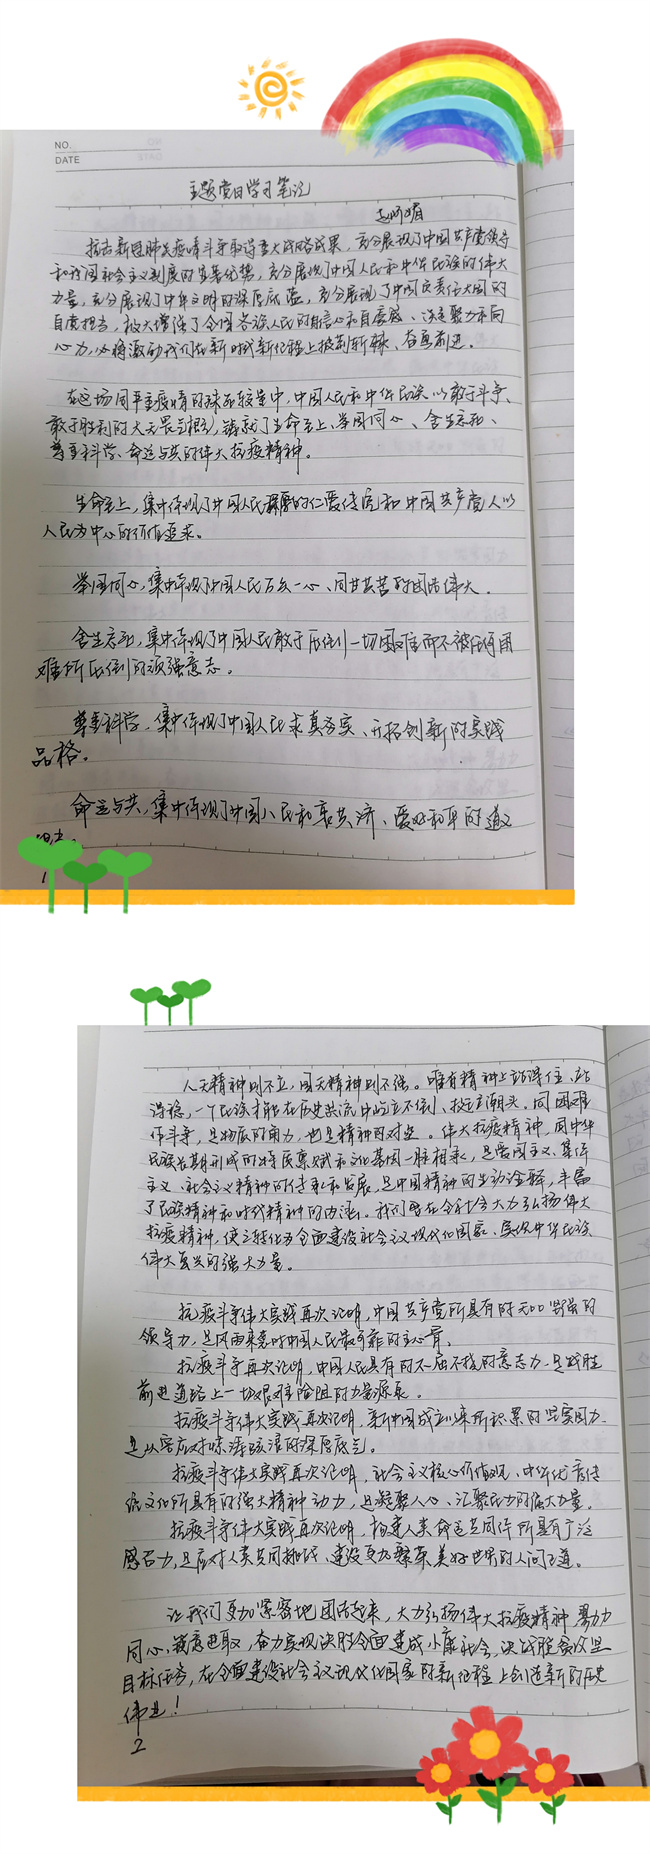 NO.
DATE
主题党日学习笔记
抗击新冠肺炎疫情斗争取得重大战略成果，充分展现了中国共产党领导
和我国社会主义制度的显著优势，充分展现了中国人民和中华民族的伟大
力量，充分展现了中华文明的深厚底蕴，充分展现了中国负责任大国的
自觉担当，极大增强了全国各族人民的自信心和自豪感、凝聚力和向
心力，必将激励我们在新时代新征程上披荆斩棘、奋勇前进。
在这场同严重疫情的殊死较量中，中国人民和中华民族以敢于斗争、
敢于胜利的大无畏气概，铸就了生命至上、举国同心、舍生忘死、
尊重科学、命运与共的伟大抗疫精神。
生命至上，集中体现了中国人民深厚的仁爱传统和中国共产党人以
人民为中心的价值追求。
举国同心，集中体现了中国人民万众一心、同甘共苦的团结伟大。
舍生忘死，集中体现了中国人民敢于压倒一切困难而不被任何困
难所压倒的顽强意志。
尊重科学，集中体现了中国人民求真务实、开拓创新的实践
品格。
命运与共，集中体现了中国人民和衷共济、爱好和平的道义
1
人无精神则不立，国无精神则不强。唯有精神上站得住、站
得稳，一个民族才能在历史洪流中屹立不倒、挺立潮头。同困难
作斗争，是物质的角力，也是精神的对垒。伟大抗疫精神，同中华
民族长期形成的特质禀赋和文化基因一脉相承，是爱国主义、集体
主义、社会主义精神的传承和发展，是中国精神的生动诠释，丰富
了民族精神和时代精神的内涵。我们要在全社会大力弘扬伟大
抗疫精神，使之转化为全面建设社会主义现代化国家、实现中华民族
伟大复兴的强大力量。
抗疫斗争伟大实践再次证明，中国共产党所具有的无比坚强的
领导力，是风雨来袭时中国人民最可靠的主心骨。
抗疫斗争再次证明，中国人民具有的不屈不挠的意志力，是战胜
前进道路上一切艰难险阻的力量源泉。
抗疫斗争伟大实践再次证明，新中国成立以来所积累的坚实国力，
是从容应对惊涛骇浪的深厚底气。
抗疫斗争伟大实践再次证明，社会主义核心价值观、中华优秀传
统文化所具有的强大精神动力，是凝聚人心、汇聚民力的强大力量。
抗疫斗争伟大实践再次证明，构建人类命运共同体所具有广泛
感召力，是应对人类共同挑战、建设更加繁荣美好世界的人间正道。
让我们更加紧密地团结起来，大力弘扬伟大抗疫精神，勠力
同心、锐意进取，奋力实现决胜全面建成小康社会、决战脱贫攻坚
目标任务，在全面建设社会主义现代化国家的新征程上创造新的历史
伟业！
2